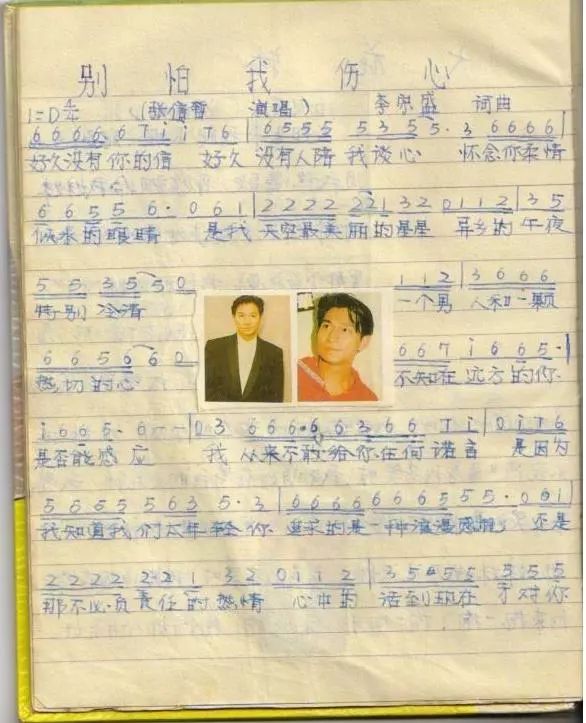 别怕我伤心
1=D 4/4 (张信哲 演唱) 李宗盛 词曲
6 6 6 6 6 7 i i 7 6 | 6 5 5 5 5 3 5 5·3 6 6 6 6 |
好久没有你的信 好久没有人陪我谈心 怀念你柔情
6 6 5 5 6· 0 6 1 | 2 2 2 2 2 2 1 3 2 0 1 1 2 | 3 5
似水的眼睛 是我天空最美丽的星星 异乡的午夜
5 5 3 5 5 0 1 1 2 | 3 6 6 6
特别冷清 一个男人和一颗
6 6 5 6 6 0 6 6 7 i 6 6 5·
热切的心 不知在远方的你
i 6 6 5· 6 — — | 0 3 6 6 6 6 6 3 6 6 7 i | 0 i 7 6
是否能感应 我从来不敢给你任何诺言 是因为
5 6 5 5 5 6 3 5·3 | 6 6 6 6 6 6 6 5 5 5· 0 6 1
我知道我们太年轻你 追求的是一种浪漫感觉 还是
2 2 2 2 2 2 1 3 2 0 1 1 2 | 3 5 5 5 5 5 5
那不必负责任的热情 心中的 话到现在 才对你